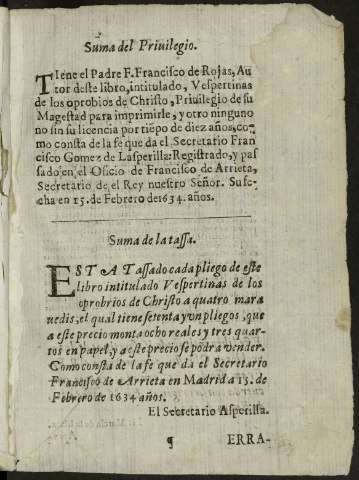 Suma del Priuilegio.
TIene el Padre F. Francisco de Rojas, Au
tor deste libro, intitulado, Vespertinas
de los oprobios de Christo, Priuilegio de su
Magestad para imprimirle, y otro ninguno
no sin su licencia por tiẽpo de diez años, co-
mo consta de la fe que da el Secretario Fran
cisco Gomez de Lasperilla: Registrado, y pas
sado en el Oficio de Francisco de Arrieta,
Secretario de el Rey nuestro Señor. Su fe-
cha en 15. de Febrero de 1634. años.
Suma de la tassa.
ESTA Tassado cada pliego de este
libro intitulado Vespertinas de los
oprobrios de Christo a quatro mara
uedis, el qual tiene setenta y vn pliegos, que
a este precio monta ocho reales y tres quar-
tos en papel, y a este precio se podra vender.
Como consta de la fe que da el Secretario
Francisco de Arrieta en Madrid a 15. de
Febrero de 1634 años.
El Secretario Asperilla.
¶ ERRA-